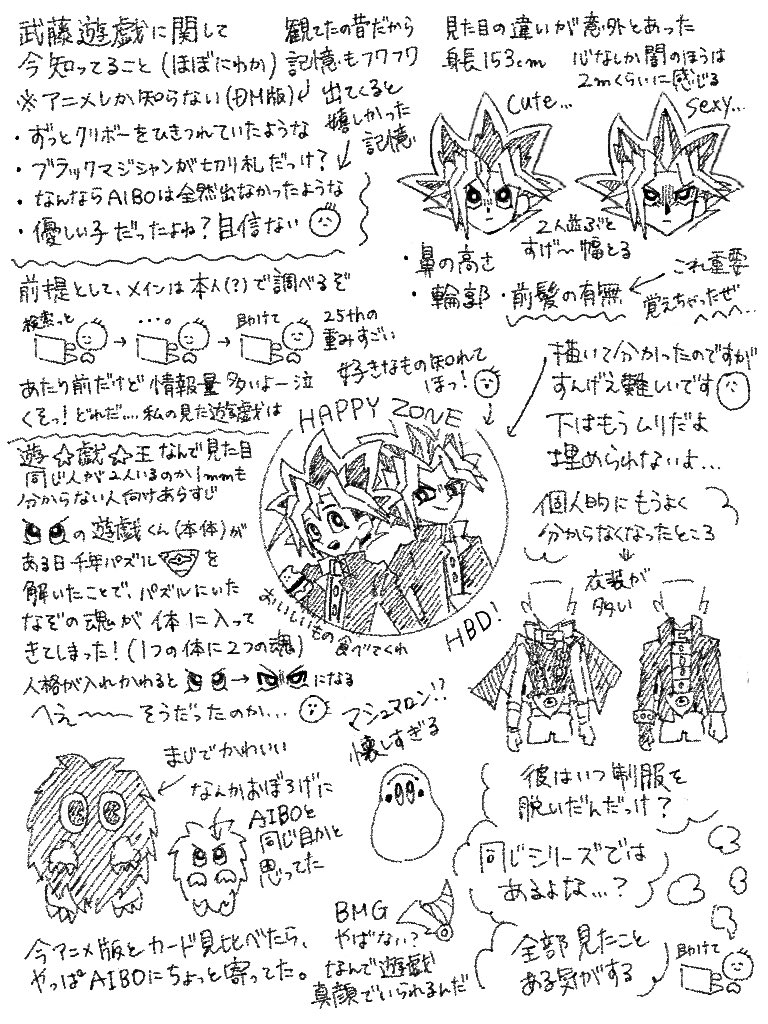 武藤遊戯に関して
今知ってること(ほぼにわか)
※アニメしか知らない(DM版)
・ずっとクリボーをひきつれていたような
・ブラックマジシャンが切り札だっけ?
・なんならAIBOは全然出なかったような
・優しい子だったよね?自信ない
観てたの昔だから
記憶もフワフワ
出てくると
嬉しかった
記憶
見た目の違いが意外とあった
身長153cm
心なしか闇のほうは
2mくらいに感じる
cute...
sexy...
2人並ぶと
すげ〜幅とる
・鼻の高さ
・輪郭・前髪の有無
これ重要
覚えちゃったぜ
へへへ...
前提として、メインは本人(?)で調べるぞ
検索っと
…。
助けて
25thの
重みすごい
あたり前だけど情報量多いよー泣
くそっ!どれだ....私の見た遊戯は
好きなもの知れて
ほっ!
描いて分かったのですが
すんげえ難しいです
下はもうムリだよ
埋められないよ...
HAPPY ZONE
おいしいもの食べてくれ
HBD!
遊☆戯☆王なんで見た目
同じ人が2人いるのか1mmも
分からない人向けあらすじ
の遊戯くん(本体)が
ある日千年パズルを
解いたことで、パズルにいた
なぞの魂が体に入って
きてしまった!(1つの体に2つの魂)
人格が入れかわると→になる
へえ〜〜そうだったのか...
個人的にもうよく
分からなくなったところ
衣装が
多い
彼はいつ制服を
脱いだんだっけ?
同じシリーズでは
あるよな...?
全部見たこと
ある気がする
助けて
まじでかわいい
なんかおぼろげに
AIBOと
同じ目かと
思ってた
マシュマロン!?
懐しすぎる
今アニメ版とカード見比べたら、
やっぱAIBOにちょっと寄ってた。
BMG
やばない?
なんで遊戯
真顔でいられるんだ